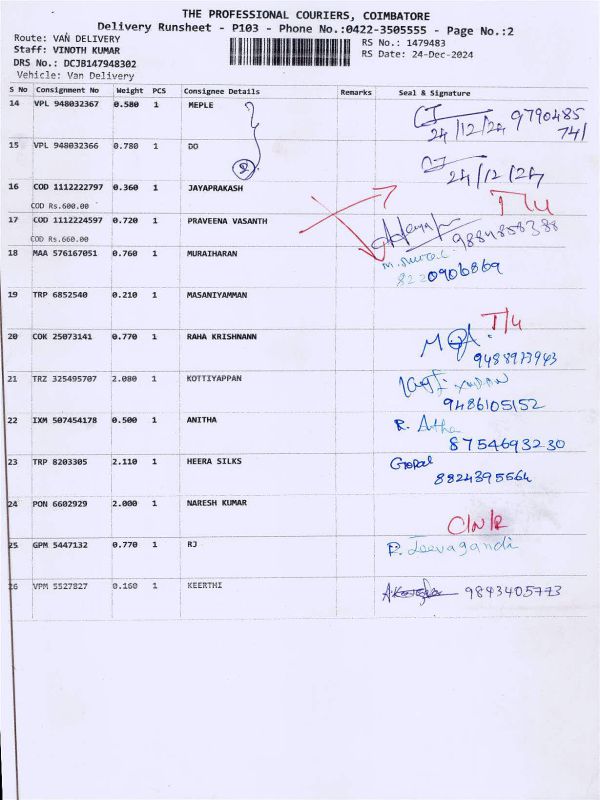 THE PROFESSIONAL COURIERS, COIMBATORE
Delivery Runsheet - P103 - Phone No.:0422-3505555 - Page No.:2
Route: VAN DELIVERY
Staff: VINOTH KUMAR
DRS No.: DCJB147948302
Vehicle: Van Delivery
RS No.: 1479483
RS Date: 24-Dec-2024
S No Consignment No Weight PCS Consignee Details Remarks Seal & Signature
14 VPL 948032367 0.580 1 MEPLE 24/12/24 9790485
741
15 VPL 948032366 0.780 1 DO 2 24/12/24
16 COD 1112222797 0.360 1 JAYAPRAKASH T/4
COD Rs.600.00
17 COD 1112224597 0.720 1 PRAVEENA VASANTH 9884858388
COD Rs.660.00
18 MAA 576167051 0.760 1 MURAIHARAN 8220906869
19 TRP 6852540 0.210 1 MASANIYAMMAN T/4
20 COK 25073141 0.770 1 RAHA KRISHNANN 9488977943
21 TRZ 325495707 2.080 1 KOTTIYAPPAN 9486105152
22 IXM 507454178 0.500 1 ANITHA R. 8754693230
23 TRP 8203305 2.110 1 HEERA SILKS Gopal 8824395564
24 PON 6602929 2.000 1 NARESH KUMAR C/N/R
25 GPM 5447132 0.770 1 RJ P. Jeevagandi
26 VPM 5527827 0.160 1 KEERTHI 9843405773